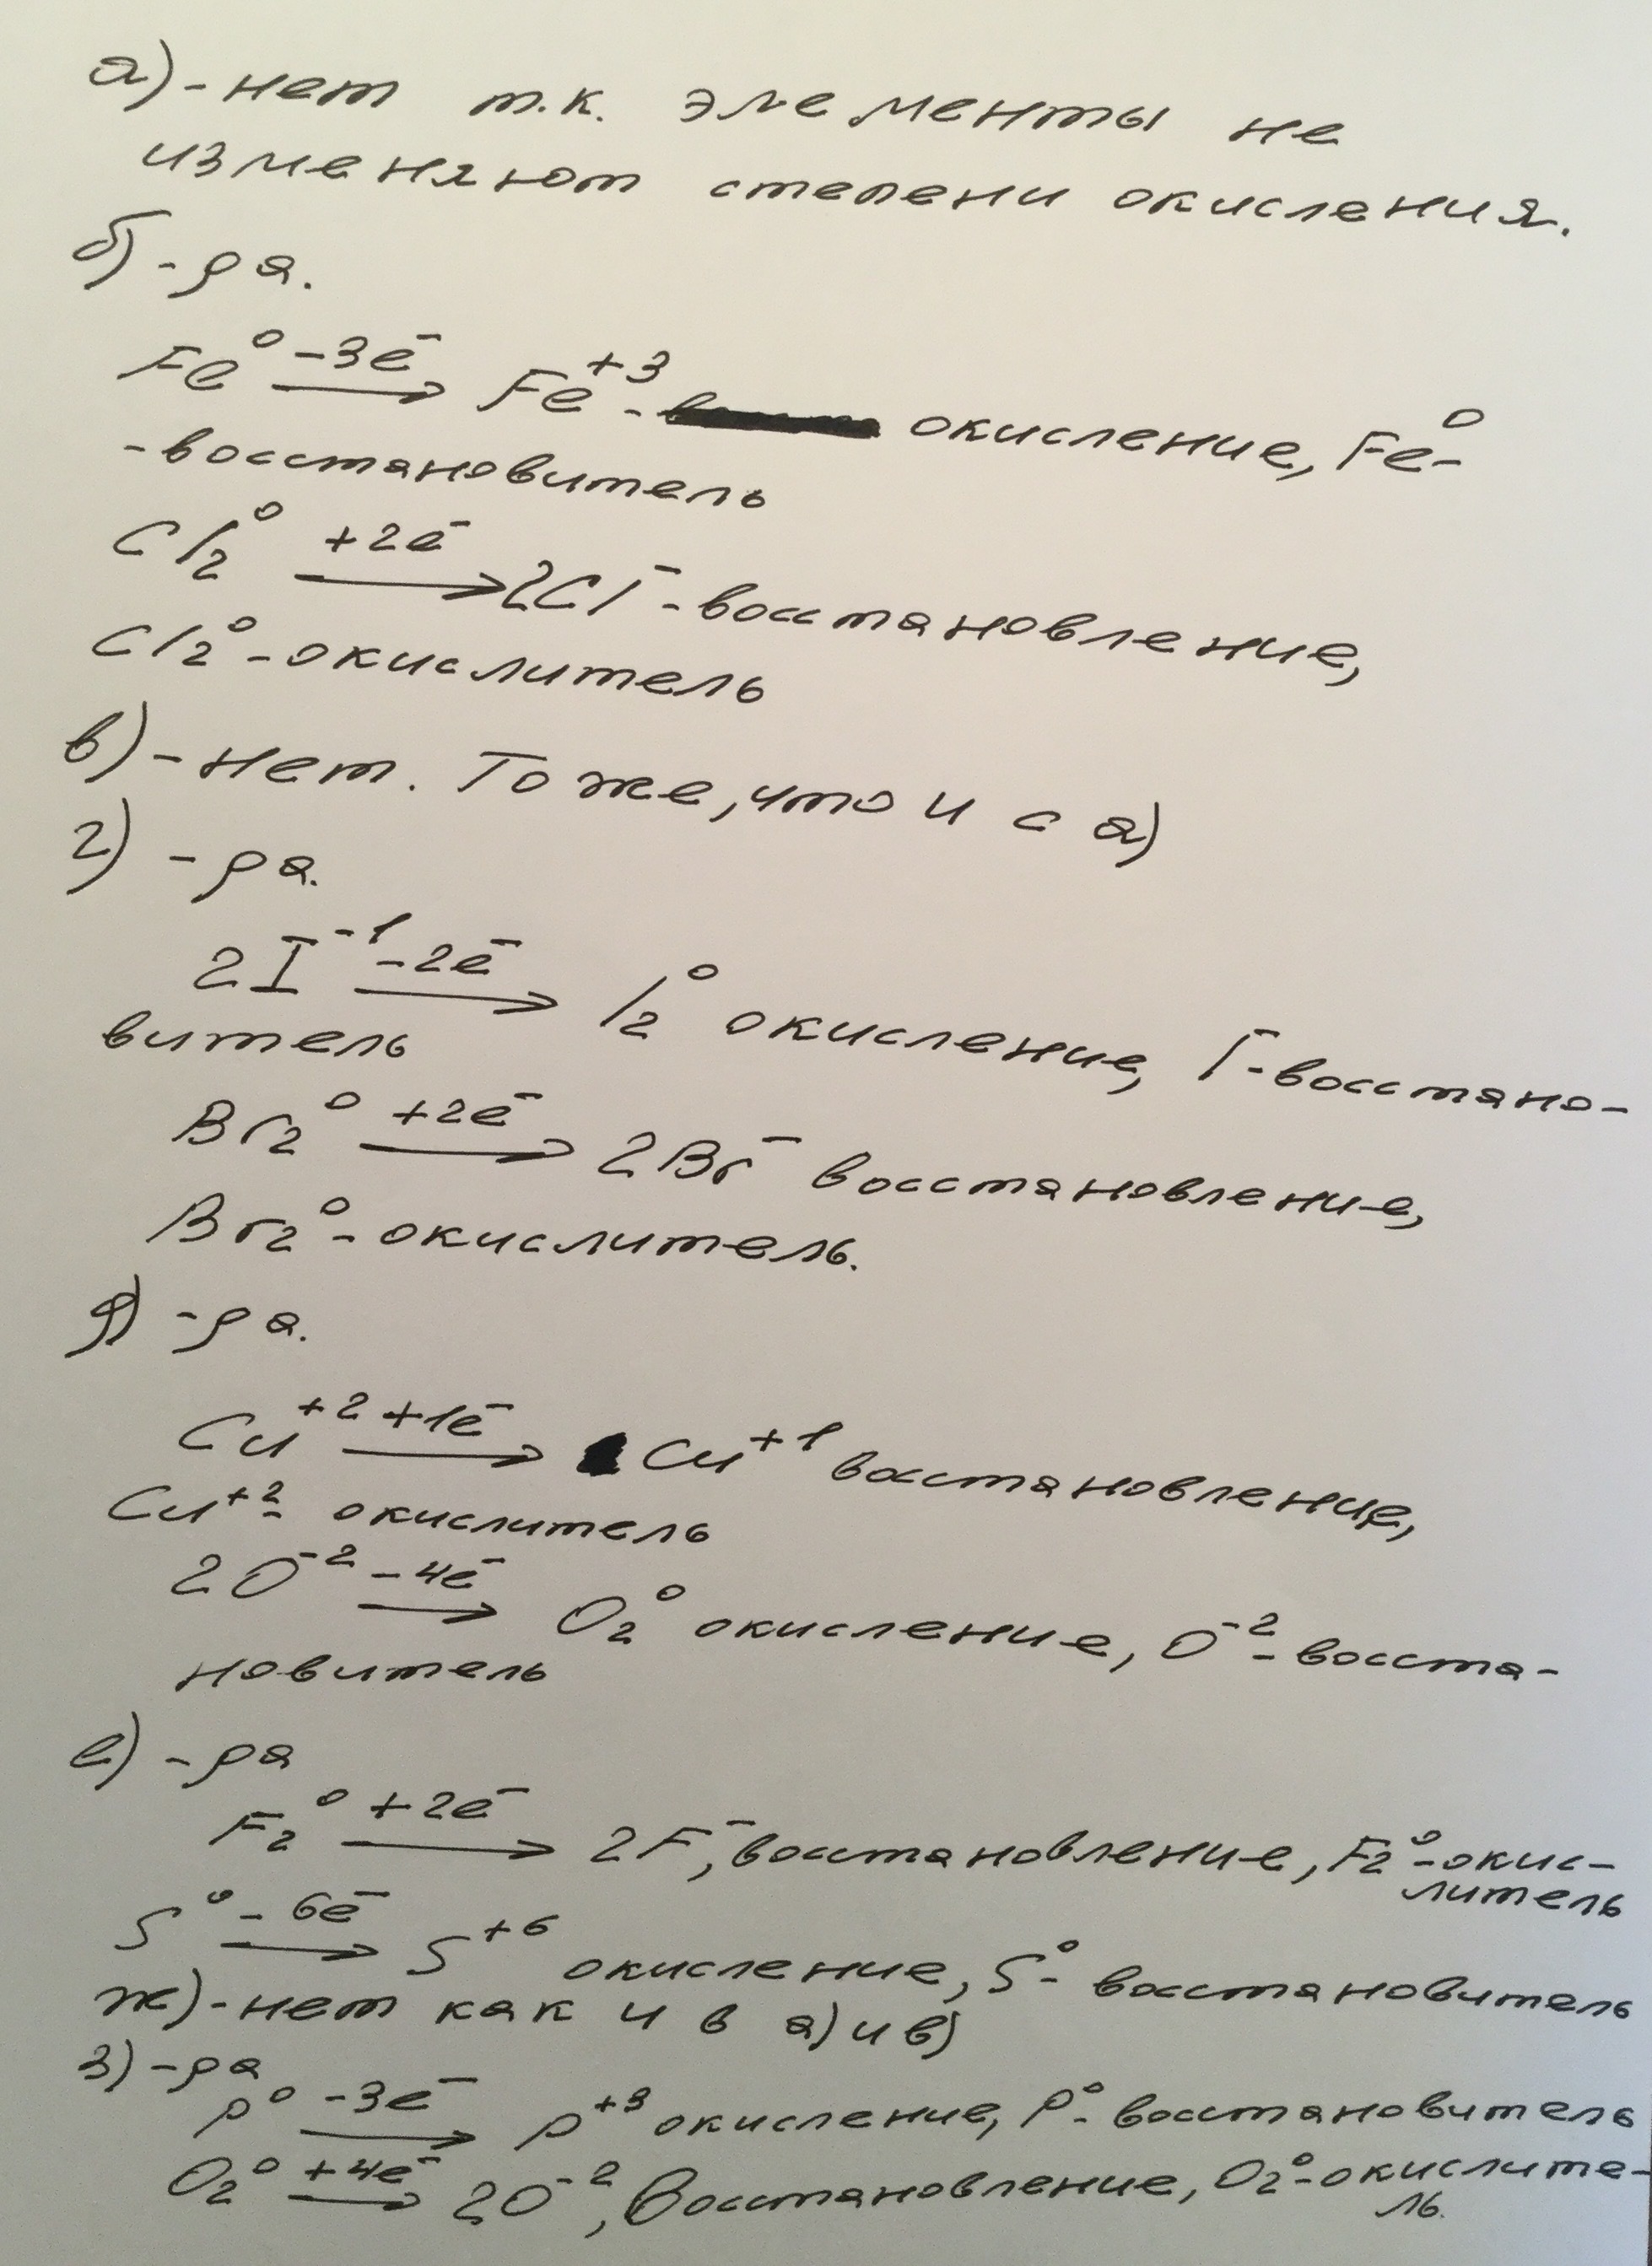 а) - нет т.к. элементы не
изменяют степени окисления.
б) - да.
Fe⁰ -3e⁻ → Fe⁺³ - окисление, Fe⁰-
- восстановитель
Cl₂⁰ +2e⁻ → 2Cl⁻ - восстановление,
Cl₂⁰ - окислитель
в) - нет. То же, что и с а)
г) - да.
2I⁻¹ -2e⁻ → I₂⁰ окисление, I⁻ - восстано-
витель
Br₂⁰ +2e⁻ → 2Br⁻ восстановление,
Br₂⁰ - окислитель.
д) - да.
Cu⁺² +1e⁻ → Cu⁺¹ восстановление,
Cu⁺² - окислитель
2O⁻² -4e⁻ → O₂⁰ окисление, O⁻² - восста-
новитель
е) - да
F₂⁰ +2e⁻ → 2F⁻, восстановление, F₂⁰ - окис-
литель
S⁰ -6e⁻ → S⁺⁶ окисление, S⁰ - восстановитель
ж) - нет как и в а) и в)
з) - да
P⁰ -3e⁻ → P⁺³ окисление, P⁰ - восстановитель
O₂⁰ +4e⁻ → 2O⁻², Восстановление, O₂⁰ - окислите-
ль.